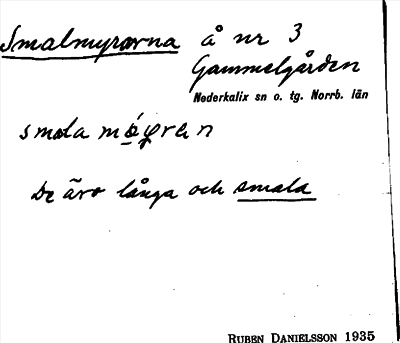 Smalmyrarna å nr 3
Gammelgården
Nederkalix sn o. tg. Norrb. län
smala
De äro långa och smala
RUBEN DANIELSSON 1935